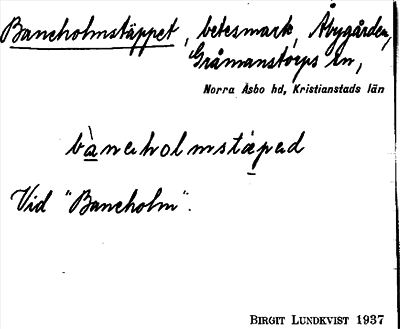 Baneholmstäppet, betesmark, Åbygården,
Gråmanstorps sn,
Norra Åsbo hd, Kristianstads län
Vid "Baneholm".
BIRGIT LUNDKVIST 1937